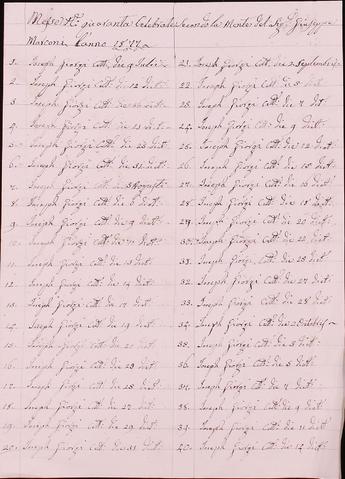 Messe No. quaranta Celebrate Secondo la Mente del Sig. Giuseppe
Marconi L'anno 1877
1. Joseph Giorgi Cott. die 9 Julii
2. Joseph Giorgi Cott. die 12 dict.
3. Joseph Giorgi Cott. die dict.
4. Joseph Giorgi Cott. die dict.
5. Joseph Giorgi Cott. die 28 dict.
6. Joseph Giorgi Cott. die 31 dict.
7. Joseph Giorgi Cott. die Augusti
8. Joseph Giorgi Cott. die 6 dict.
9. Joseph Giorgi Cott. die 9 dict.
10. Joseph Giorgi Cott. die 11 dict.
11. Joseph Giorgi Cott. die 13 dict.
12. Joseph Giorgi Cott. die 14 dict.
13. Joseph Giorgi Cott. die 17 dict.
14. Joseph Giorgi Cott. die 19 dict.
15. Joseph Giorgi Cott. die 21 dict.
16. Joseph Giorgi Cott. die 23 dict.
17. Joseph Giorgi Cott. die 25 dict.
18. Joseph Giorgi Cott. die 27 dict.
19. Joseph Giorgi Cott. die 29 dict.
20. Joseph Giorgi Cott. die 31 dict.
21. Joseph Giorgi Cott. die 2 Septembris
22. Joseph Giorgi Cott. die 5 dict.
23. Joseph Giorgi Cott. die 7 dict.
24. Joseph Giorgi Cott. die 9 dict.
25. Joseph Giorgi Cott. die 12 dict.
26. Joseph Giorgi Cott. die 15 dict.
27. Joseph Giorgi Cott. die 16 dict.
28. Joseph Giorgi Cott. die 18 dict.
29. Joseph Giorgi Cott. die 20 dict.
30. Joseph Giorgi Cott. die 22 dict.
31. Joseph Giorgi Cott. die 25 dict.
32. Joseph Giorgi Cott. die 27 dict.
33. Joseph Giorgi Cott. die 28 dict.
34. Joseph Giorgi Cott. die 2 Octobris
35. Joseph Giorgi Cott. die 3 dict.
36. Joseph Giorgi Cott. die 5 dict.
37. Joseph Giorgi Cott. die 7 dict.
38. Joseph Giorgi Cott. die 9 dict.
39. Joseph Giorgi Cott. die 11 dict.
40. Joseph Giorgi Cott. die 12 dict.